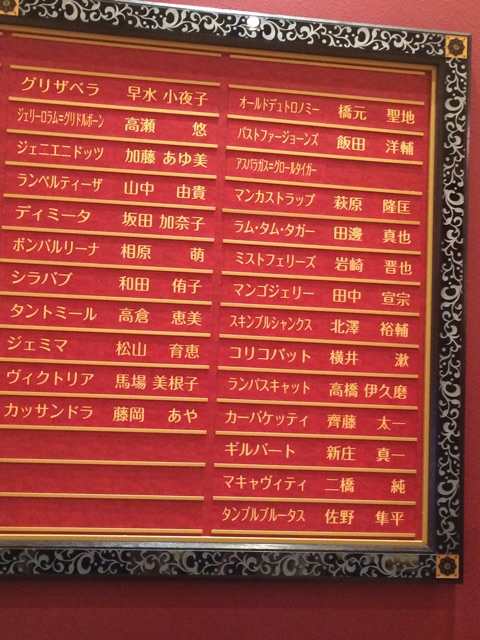 グリザベラ 早水 小夜子
ジェリーロラム=グリドルボーン 高瀬 悠
ジェニエニドッツ 加藤 あゆ美
ランペルティーザ 山中 由貴
ディミータ 坂田 加奈子
ボンバルリーナ 相原 萌
シラバブ 和田 侑子
タントミール 高倉 恵美
ジェミマ 松山 育恵
ヴィクトリア 馬場 美根子
カッサンドラ 藤岡 あや
オールドデュトロノミー 橋元 聖地
バストファージョーンズ 飯田 洋輔
アスパラガス=グロールタイガー
マンカストラップ 萩原 隆匡
ラム・タム・タガー 田邊 真也
ミストフェリーズ 岩崎 晋也
マンゴジェリー 田中 宣宗
スキンブルシャンクス 北澤 裕輔
コリコパット 横井 漱
ランパスキャット 高橋 伊久磨
カーバケッティ 齊藤 太一
ギルバート 新庄 真一
マキャヴィティ 二橋 純
タンブルブルータス 佐野 隼平